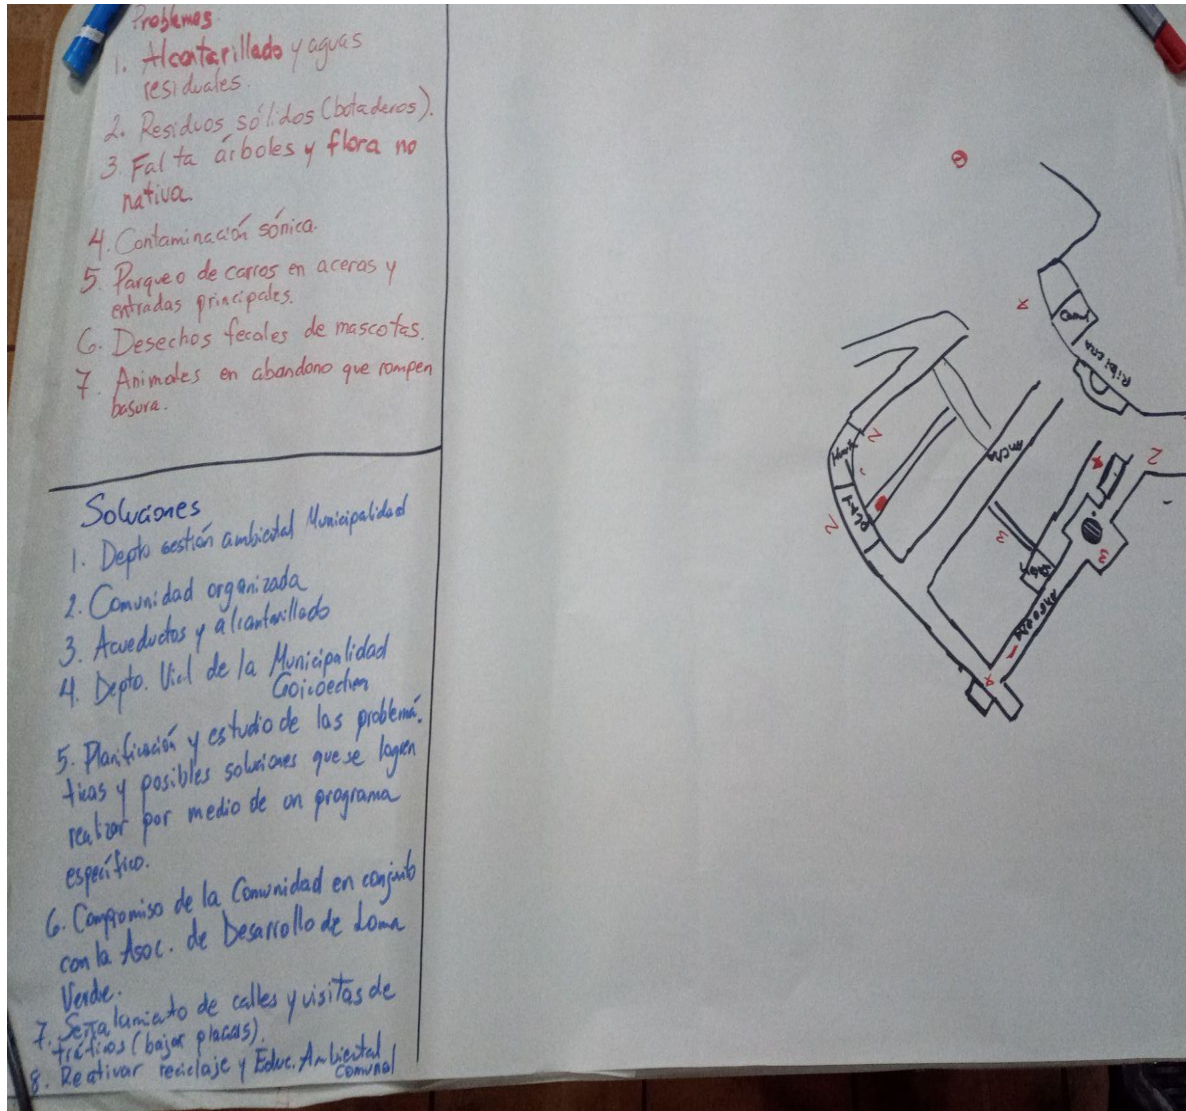 Problemas
1. Alcantarillado y aguas
residuales.
2. Residuos sólidos (botaderos).
3. Falta árboles y flora no
nativa.
4. Contaminación sónica.
5. Parqueo de carros en aceras y
entradas principales.
6. Desechos fecales de mascotas.
7. Animales en abandono que rompen
basura.
Soluciones
1. Depto Gestión ambiental Municipalidad
2. Comunidad organizada
3. Acueductos y alcantarillado
4. Depto. Vial de la Municipalidad
Goicoechea
5. Planificación y estudio de las problemá-
ticas y posibles soluciones que se logren
realizar por medio de un programa
específico.
6. Compromiso de la Comunidad en conjunto
con la Asoc. de Desarrollo de Loma
Verde.
7. Señalamiento de calles y visitas de
tráficos (bajar placas).
8. Reativar reciclaje y Educ. Ambiental
comunal
2
2
2
3
3